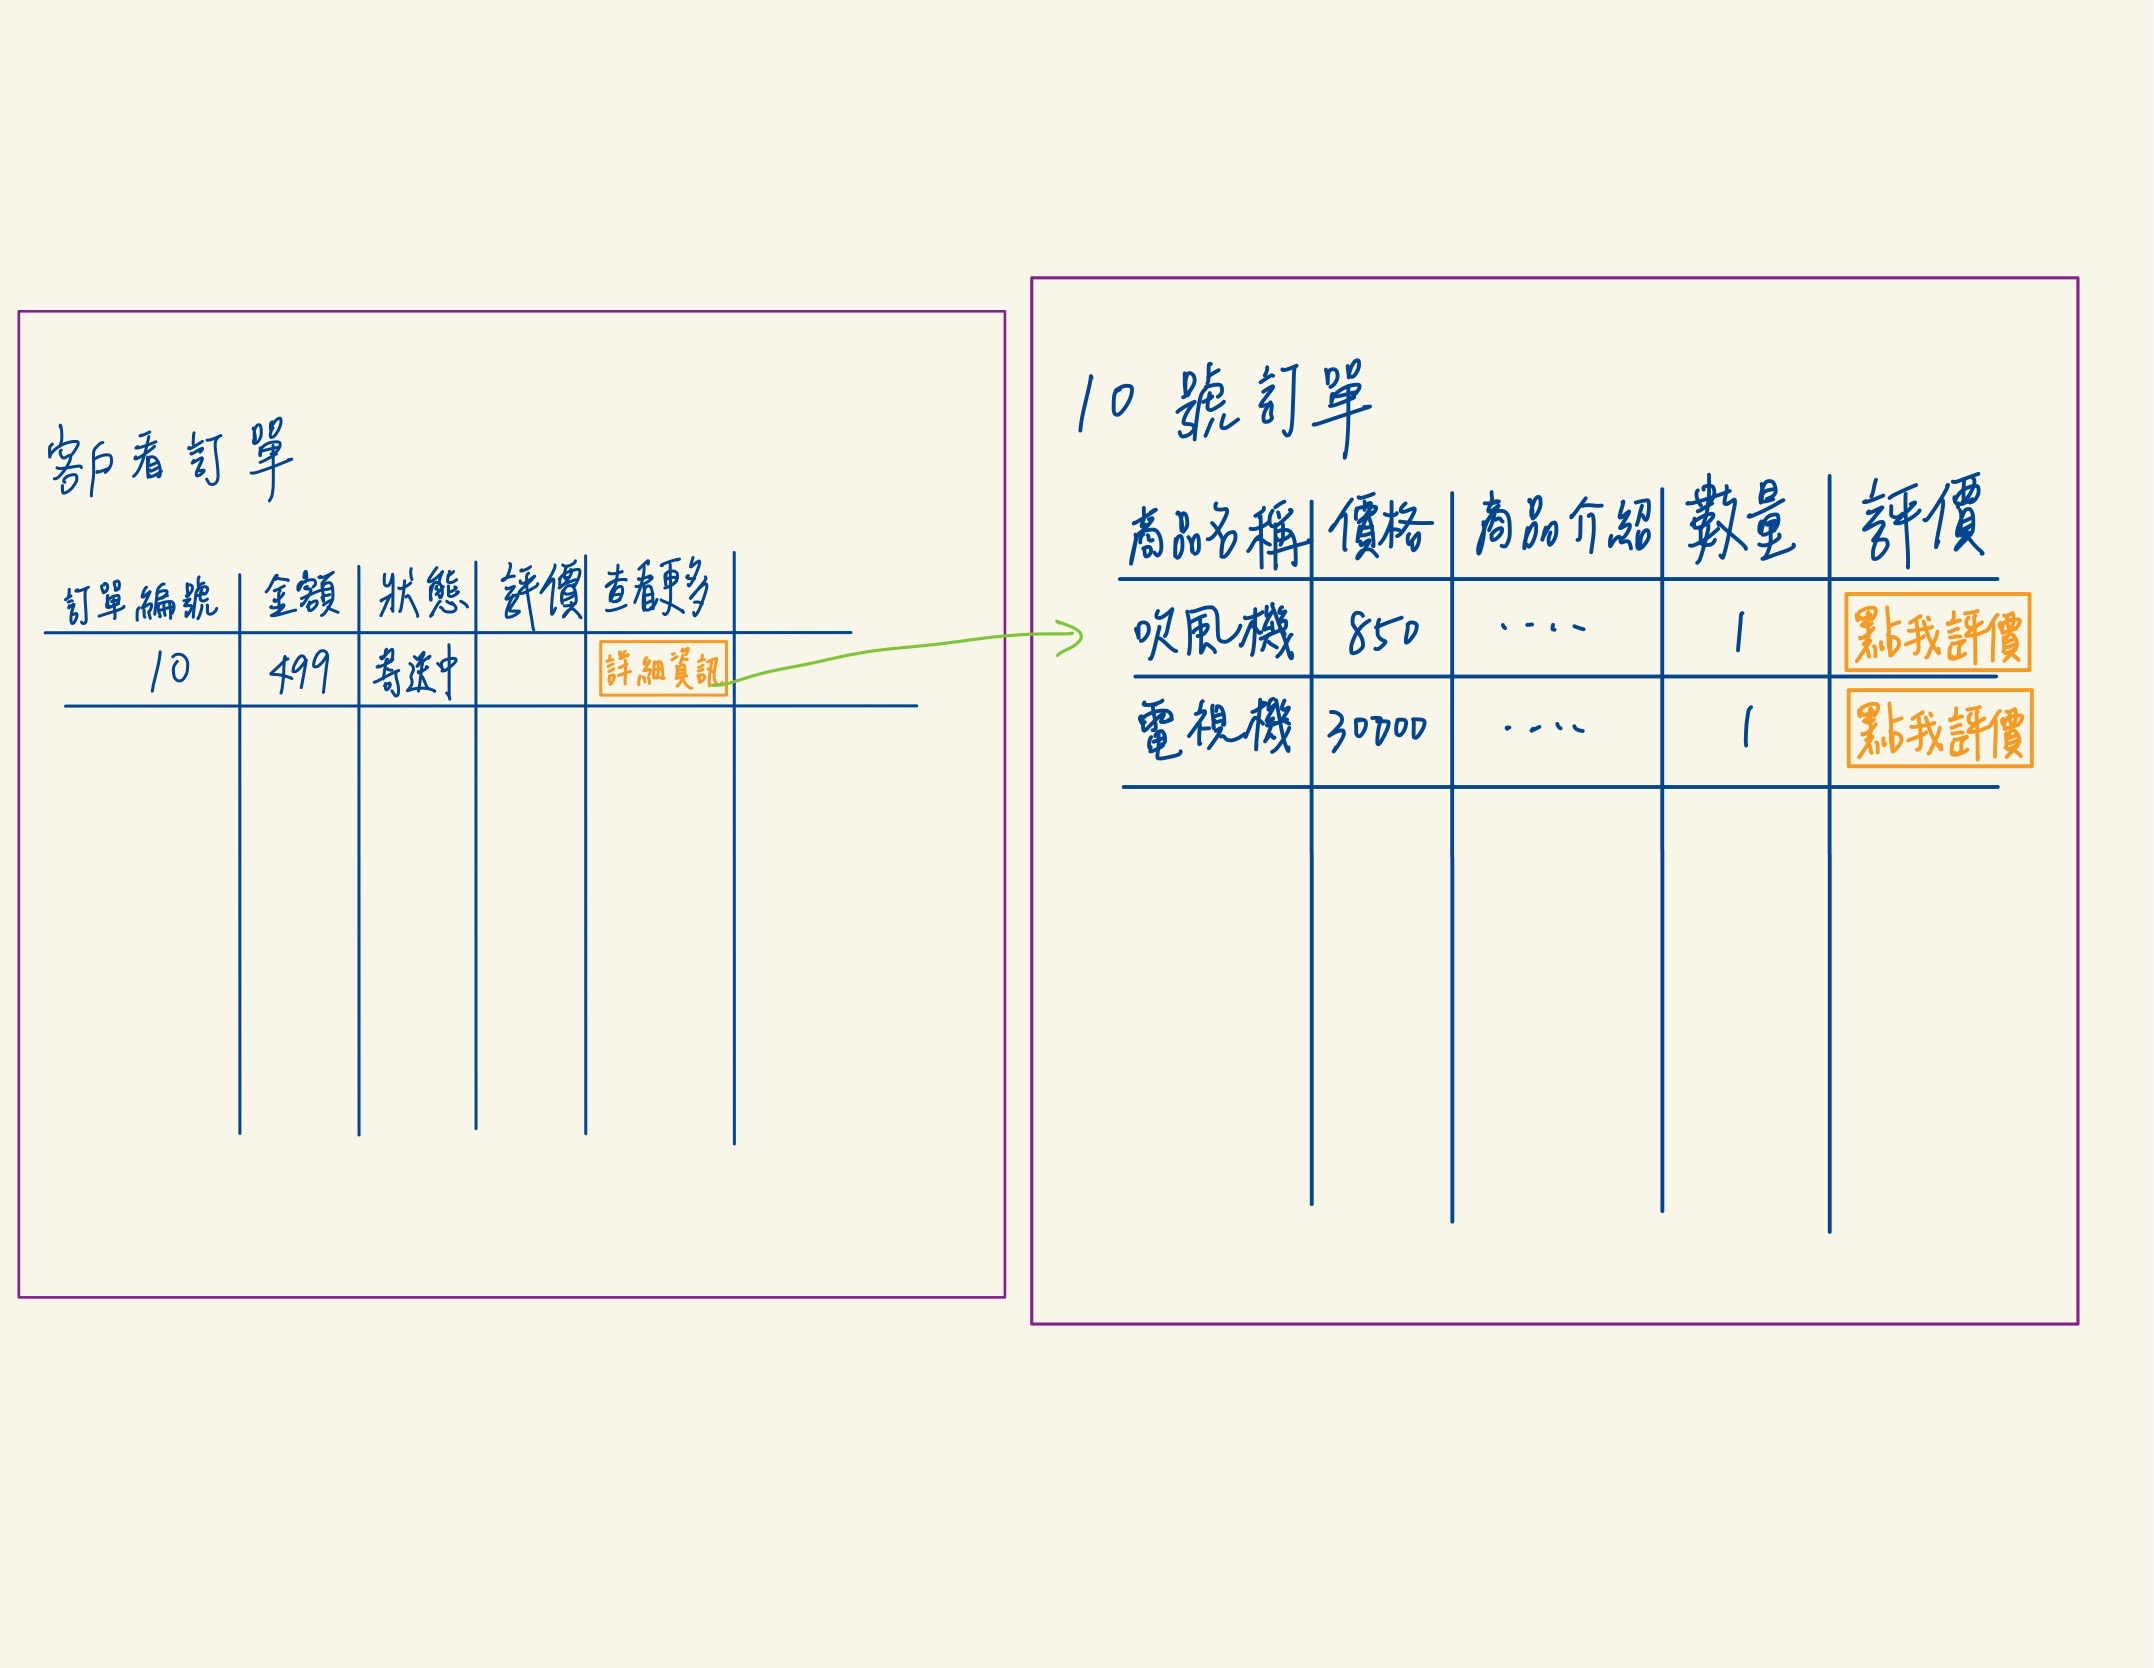 客戶看訂單
訂單編號 金額 狀態 評價 查看更多
10 499 寄送中 詳細資訊
10 號訂單
商品名稱 價格 商品介紹 數量 評價
吹風機 850 .... 1 點我評價
電視機 30000 .... 1 點我評價